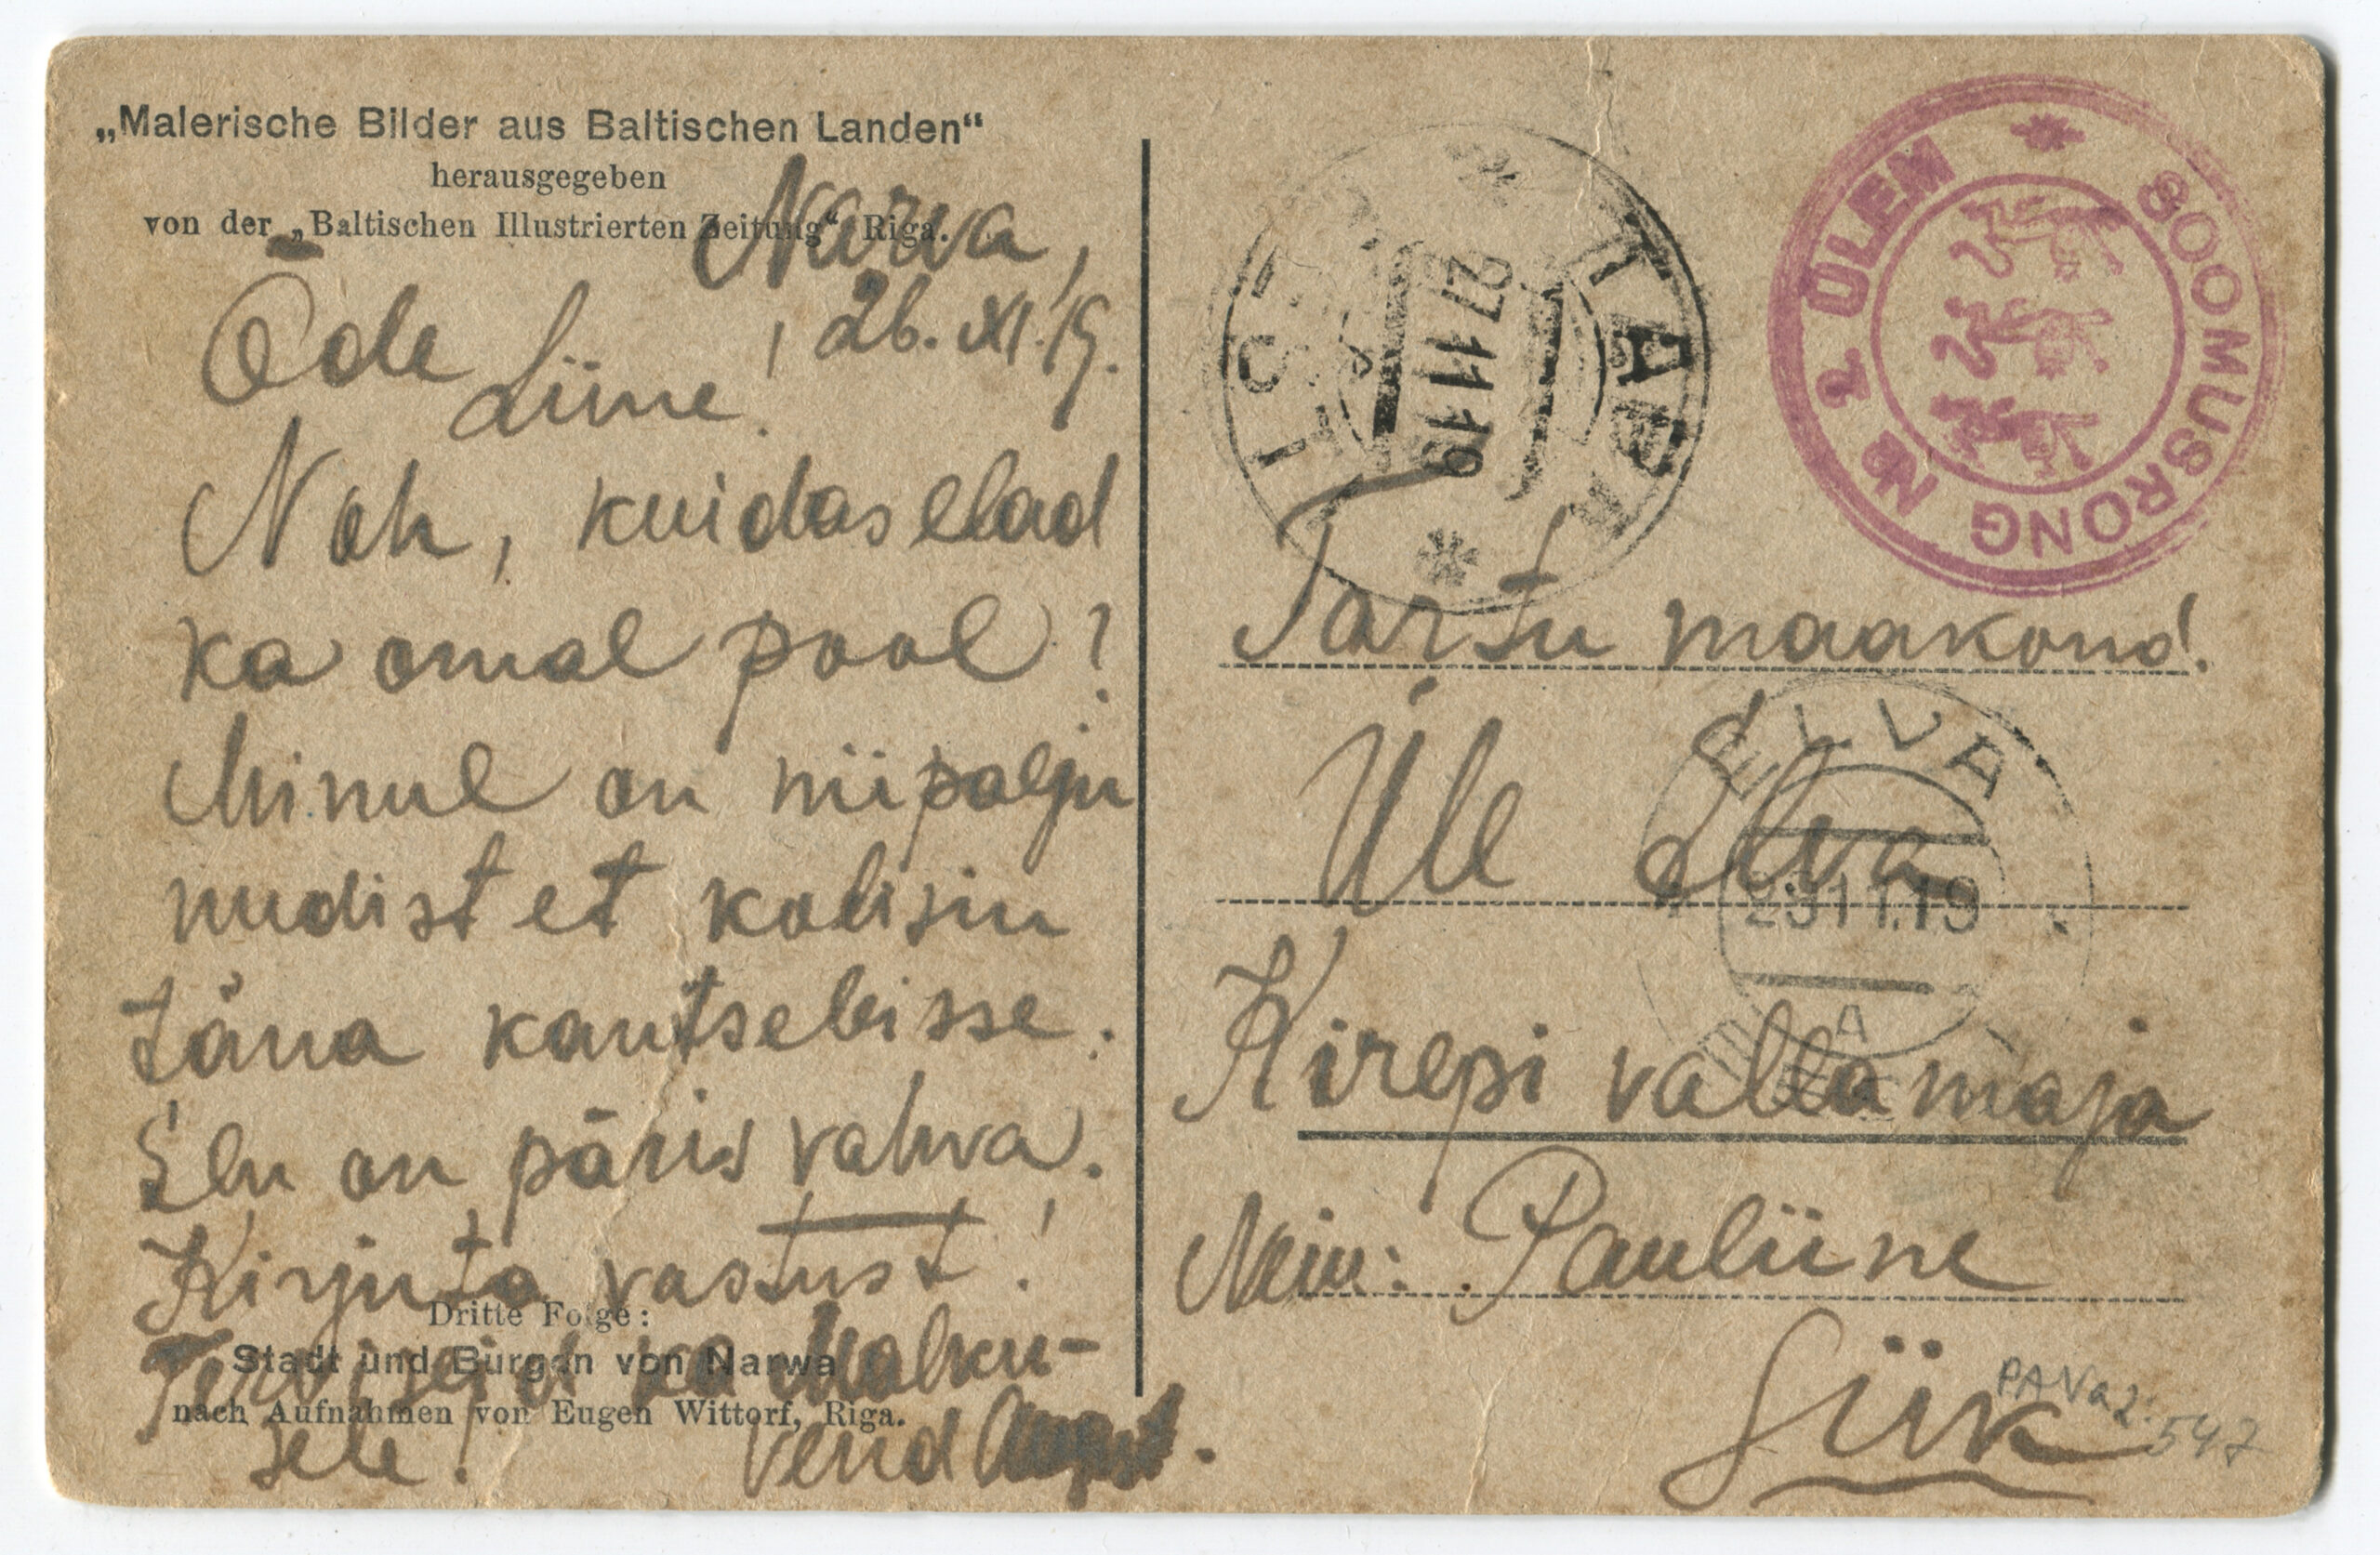 „Malerische Bilder aus Baltischen Landen“
herausgegeben
von der „Baltischen Illustrierten Zeitung“ Riga.
Narva,
26. XI. 19.
Õde Liine!
Noh, kuidas elad
ka omal pool?
Minul on nii palju
uudist et kolisin
täna kantseleisse.
Elu on päris vahva.
Kirjuta vastust!
Terviseid ka Malku-
sele!
Vend August.
Dritte Folge:
Stadt und Burgen von Narwa
nach Aufnahmen von Eugen Wittorf, Riga.
TAPA
27 11 19
SOOMUSRONG № 2 ÜLEM
Tartu maakond.
Üle Elva
ELVA
29 11.19
A
Kirepi vallamaja
Neiu: Pauliine
Siik
PAVa2:547